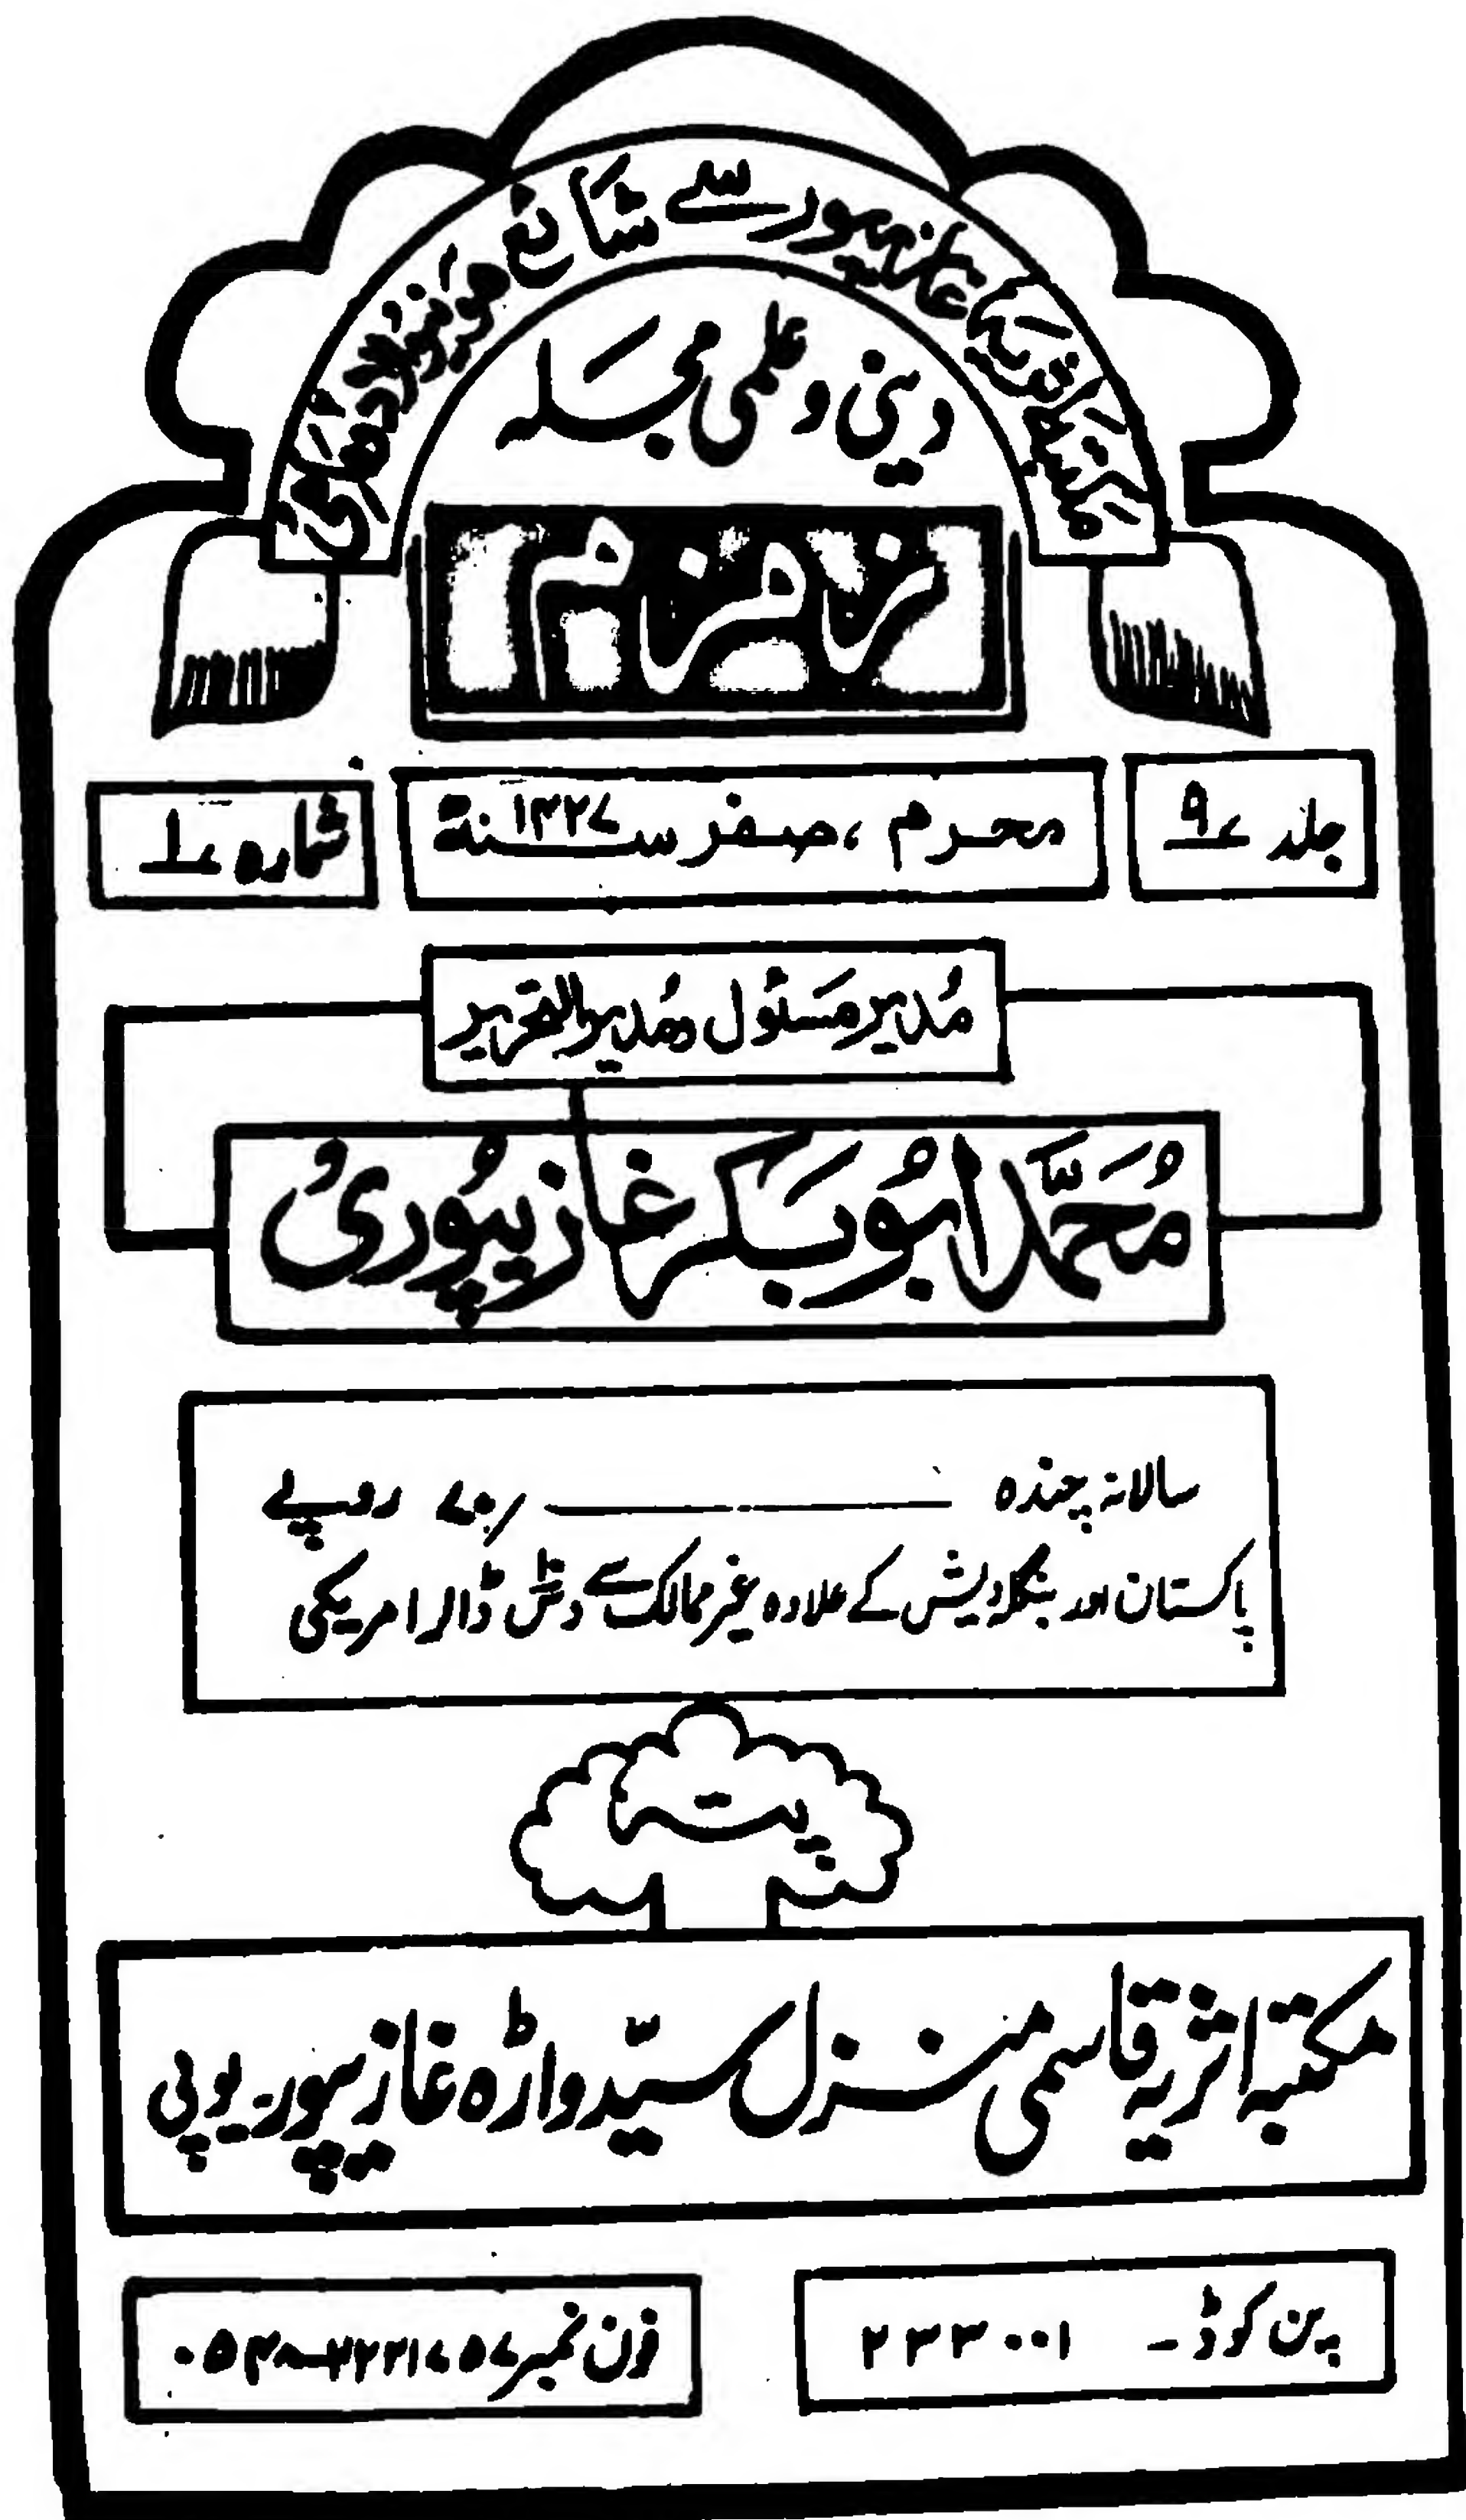 مکتبہ اثریہ غازیپور سے شائع ہونے والا دو ماہی
دینی و علمی مجلہ
زمزم
جلد ۹
محرم، صفر سنہ ۱۴۲۷
شمارہ ۱
مُدیر مَسئول و مُدیر التحریر
مُحَمَّد ابُوبَکر غازیپُوری
سالانہ چندہ ـــــــــ ۷۰/ روپے
پاکستان اور بنگلہ دیش کے علاوہ غیر ممالک سے دس ڈالر امریکی
پتہ
مکتبہ اثریہ قاسمی منزل سیّد واڑہ غازیپور۔ یوپی
پن کوڈ۔ ۲۳۳۰۰۱
فون نمبر